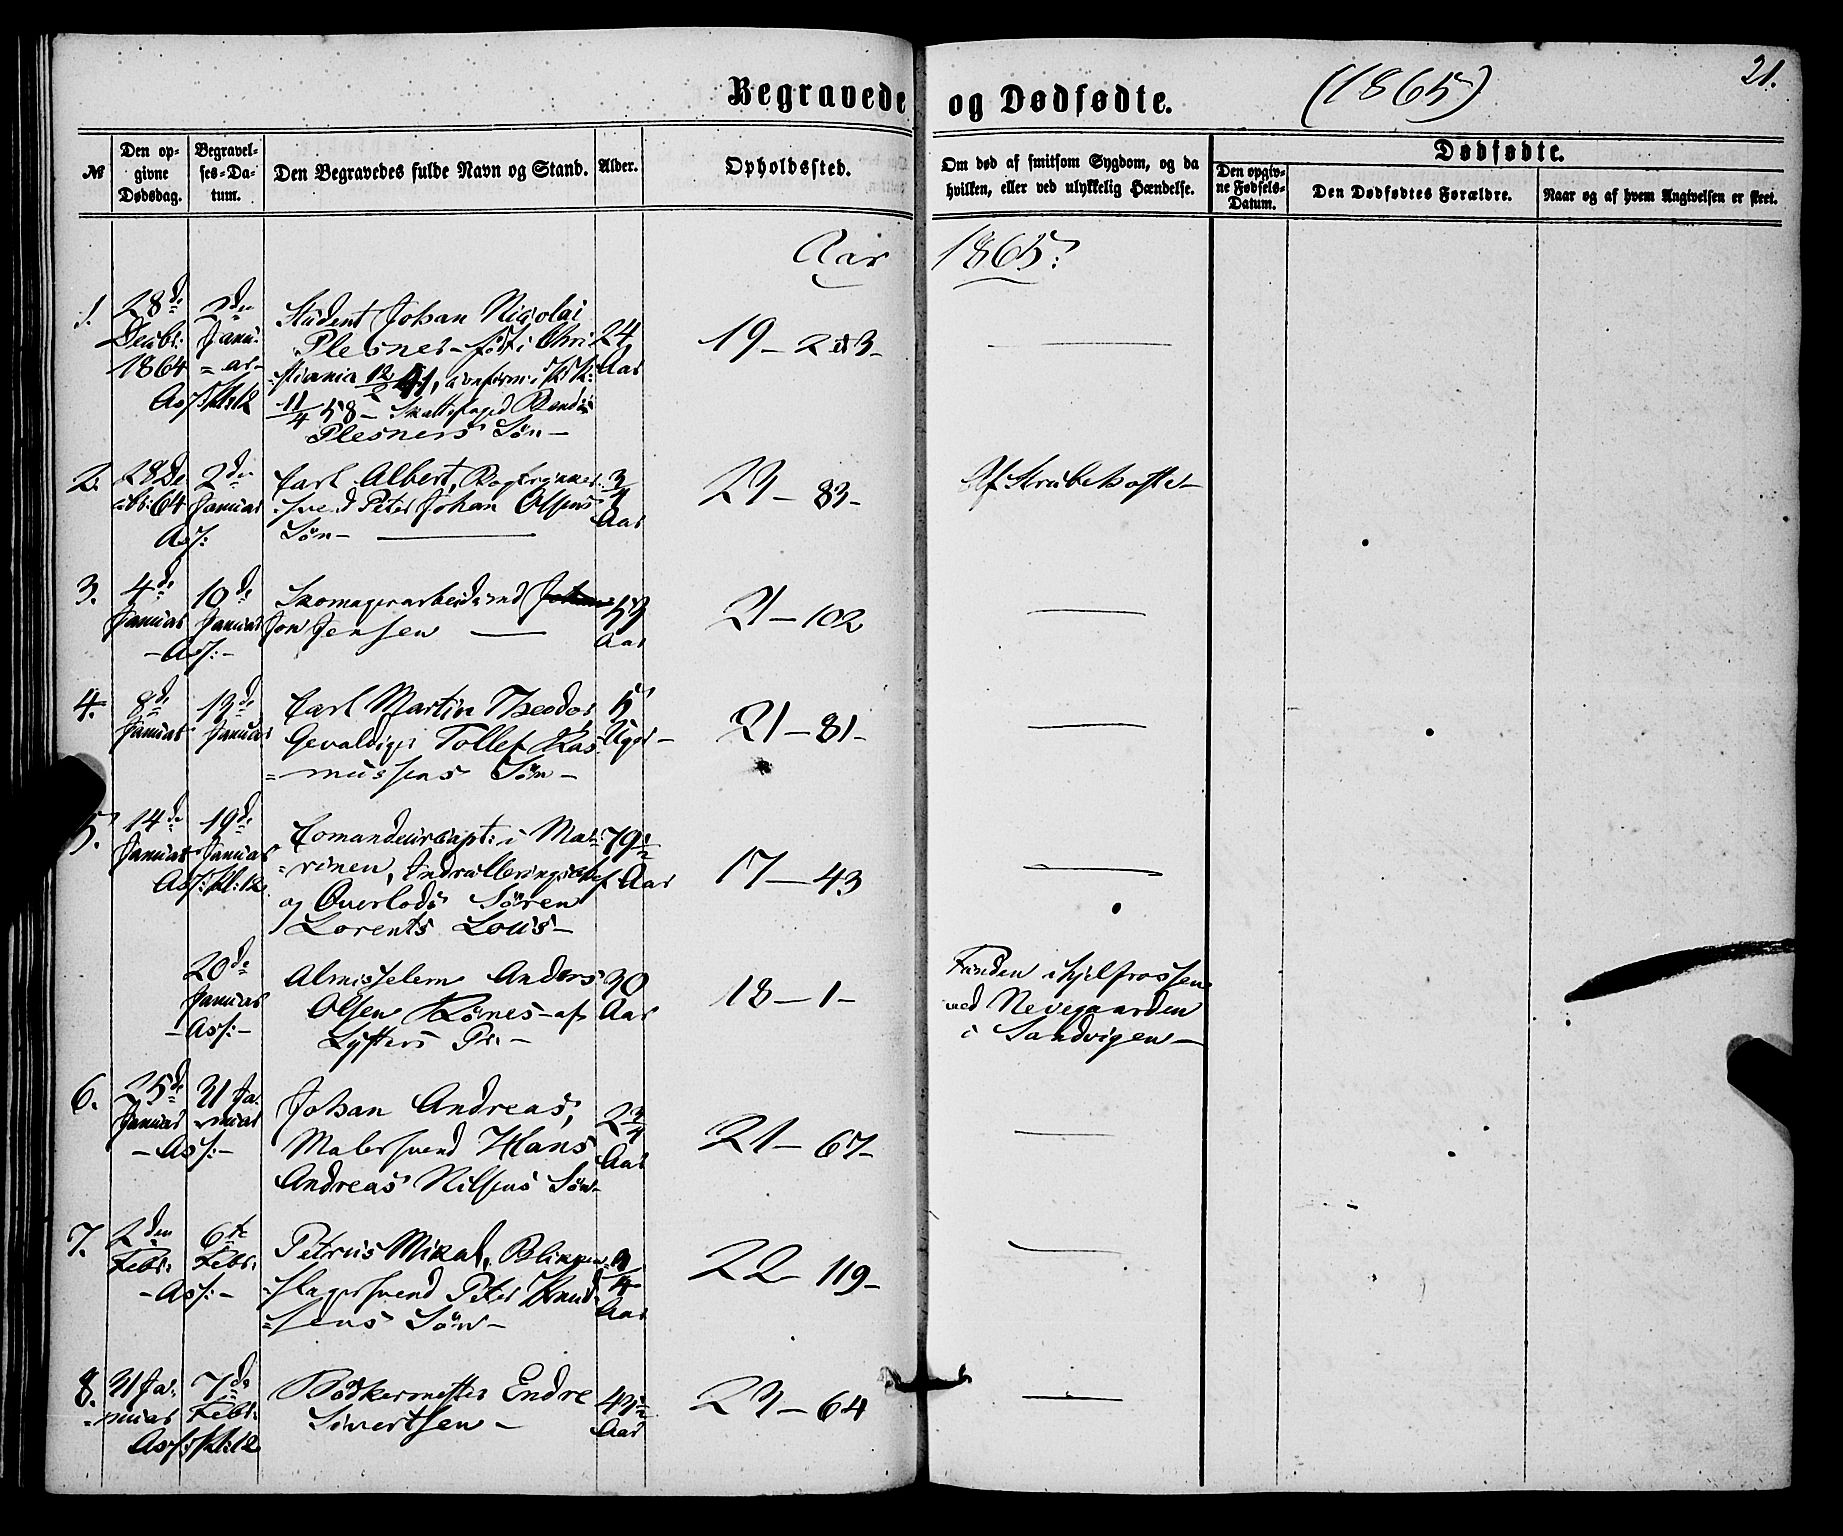 Begravede og Dødfødte. (1865) 21.
№
Den opgivne Dødsdag.
Begravelses-Datum.
Den Begravedes fulde Navn og Stand.
Alder.
Opholdssted.
Om død af smitsom Sygdom, og da hvilken, eller ved ulykkelig Hændelse.
Dødfødte.
Den opgivne Fødsels-Datum.
Den Dødfødtes Forældre.
Naar og af hvem Angivelsen er skeet.
Aar 1865:
1. 28de Decbr: 1864 2den Januar Ass: Kl: 12
Student Johan Nicolai
Plesner - født i Chri
stiania 12/2 41, confirm: i
11/4 58 -
Plesners Søn -
24 Aar
19 - 2 et 3 -
2. 28 Decbr: 64 2den Januar Ass:
Carl Albert,
svend Peter Johan Olsens
Søn -
3/4 Aar
23 - 83 -
Af Strubehoste -
3. 4de Januar 10de Januar - Ass: -
Skomagerarbeidsmd Johan
Jon Jensen -
53 Aar
21 - 102
4. 8de Januar 13de Januar
Carl Martin Theodor
Gevaldiger Tollef Ras
= mussens Søn -
5 Uger -
21 - 81 -
5. 14de Januar 19de Januar Ass: Kl: 12
Comandeurcapt: i Ma-
= rinen, Indrulleringschef
og Overlods Søren
Lorents Lous -
79 1/2 Aar
17 - 43
20de Januar - Ass: -
Almisselem Anders
Olsen Rønes - af
Lysters Pr: -
30 Aar
18 - 1 -
Funden ihjelfrossen
ved Nevegaarden
i Sandvigen -
6. 25de Januar 31 Januar - Ass: -
Johan Andreas,
Malersvend Hans
Andreas Nilsens Søn -
2 3/4 Aar
21 - 67 -
7. 2den Febr: 6te Febr: - Ass: -
Petrus Mikal, Blikken-
slagersvend Peter Knud
= sens Søn -
Aar
22 - 119 -
8. 31 Januar 7de Febr: Ass: Kl: 12
Bødkermester Endre
Sivertsen -
43 1/2 Aar
23 - 64